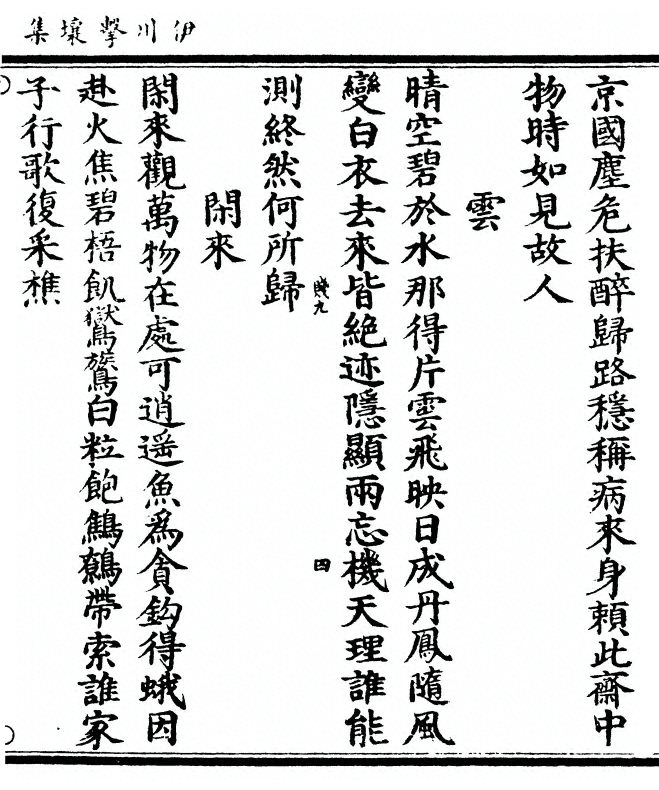 伊川擊壤集
京國塵危扶醉歸路穩稱病來身賴此齋中
物時如見故人
雲
晴空碧於水那得片雲飛映日成丹鳳隨風
變白衣去來皆絕迹隱顯兩忘機天理誰能
測終然何所歸
賤九
四
閑來
閑來觀萬物在處可逍遥魚為貪鈎得蛾因
赴火焦碧梧飢鸑鷟白粒飽鷦鷯帶索誰家
子行歌復采樵